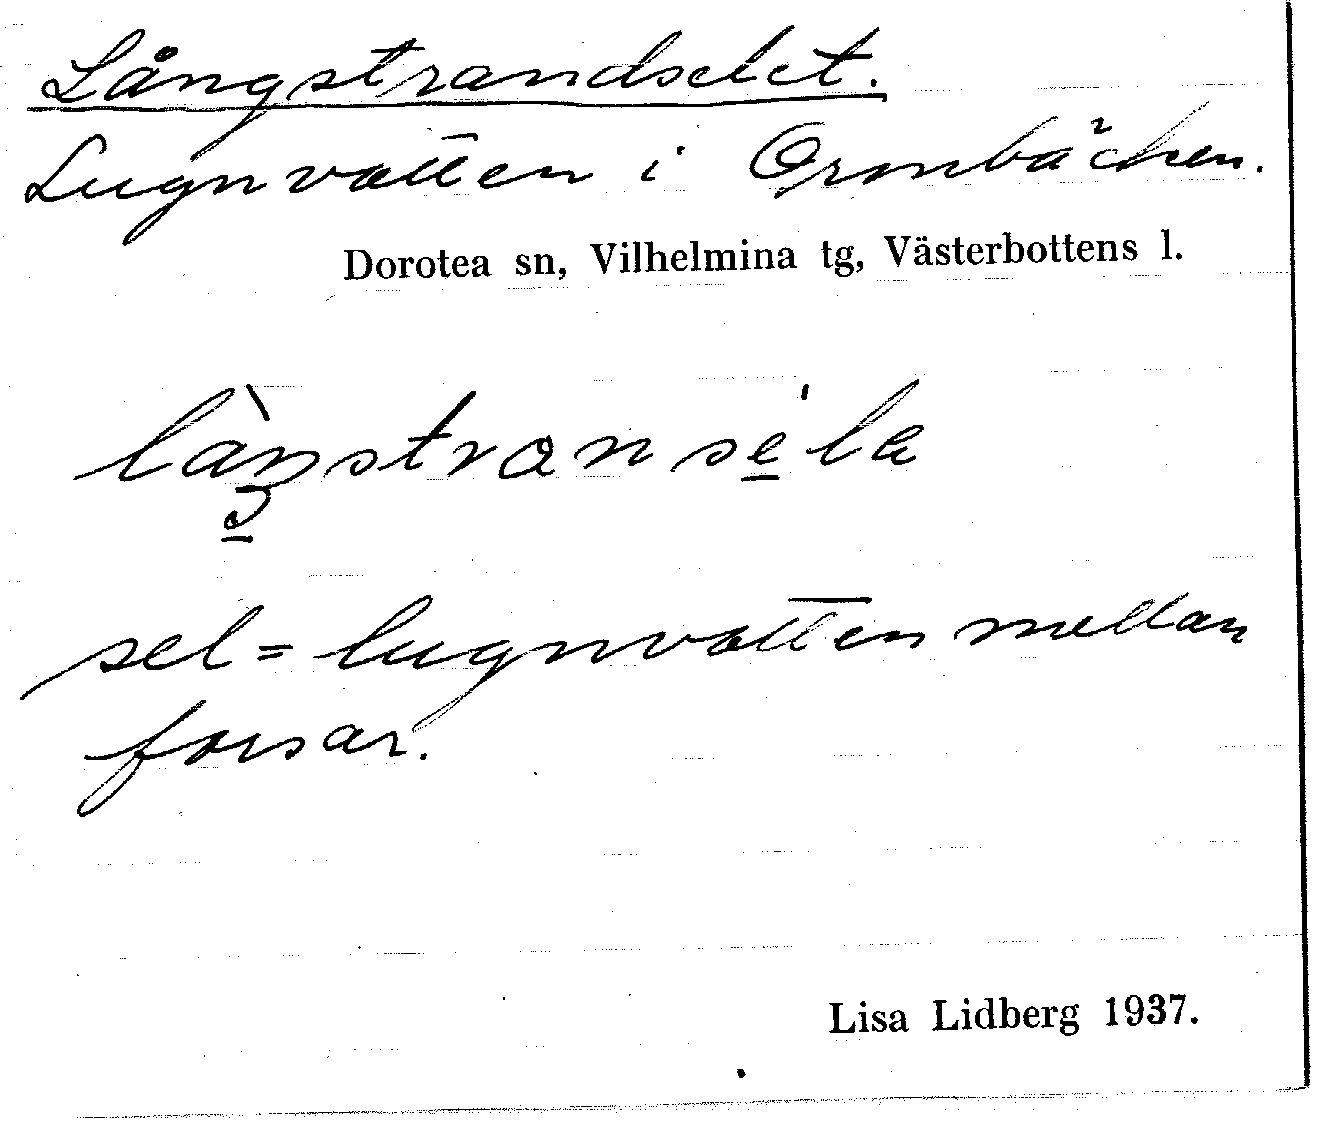 Långstrandselet.
Lugnvatten i Ormbäcken.
Dorotea sn, Vilhelmina tg, Västerbottens l.
làŋstransè'la
sel = lugnvatten mellan
forsar.
Lisa Lidberg 1937.